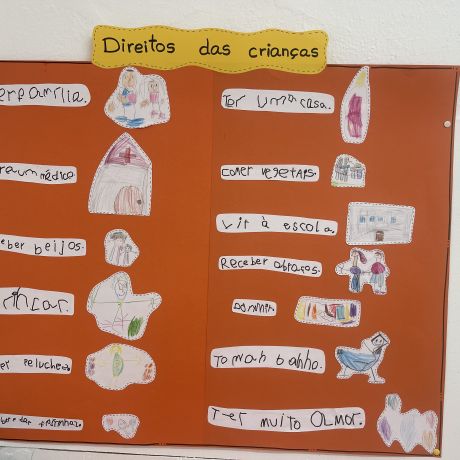 Direitos das crianças
er família.
ra um médico.
ceber beijos.
rincar.
er peluches.
ber e dar
Ter uma casa.
comer vegetais.
Vir à escola.
Receber abraços.
Dormir.
Tomar banho.
Ter muito Amor.